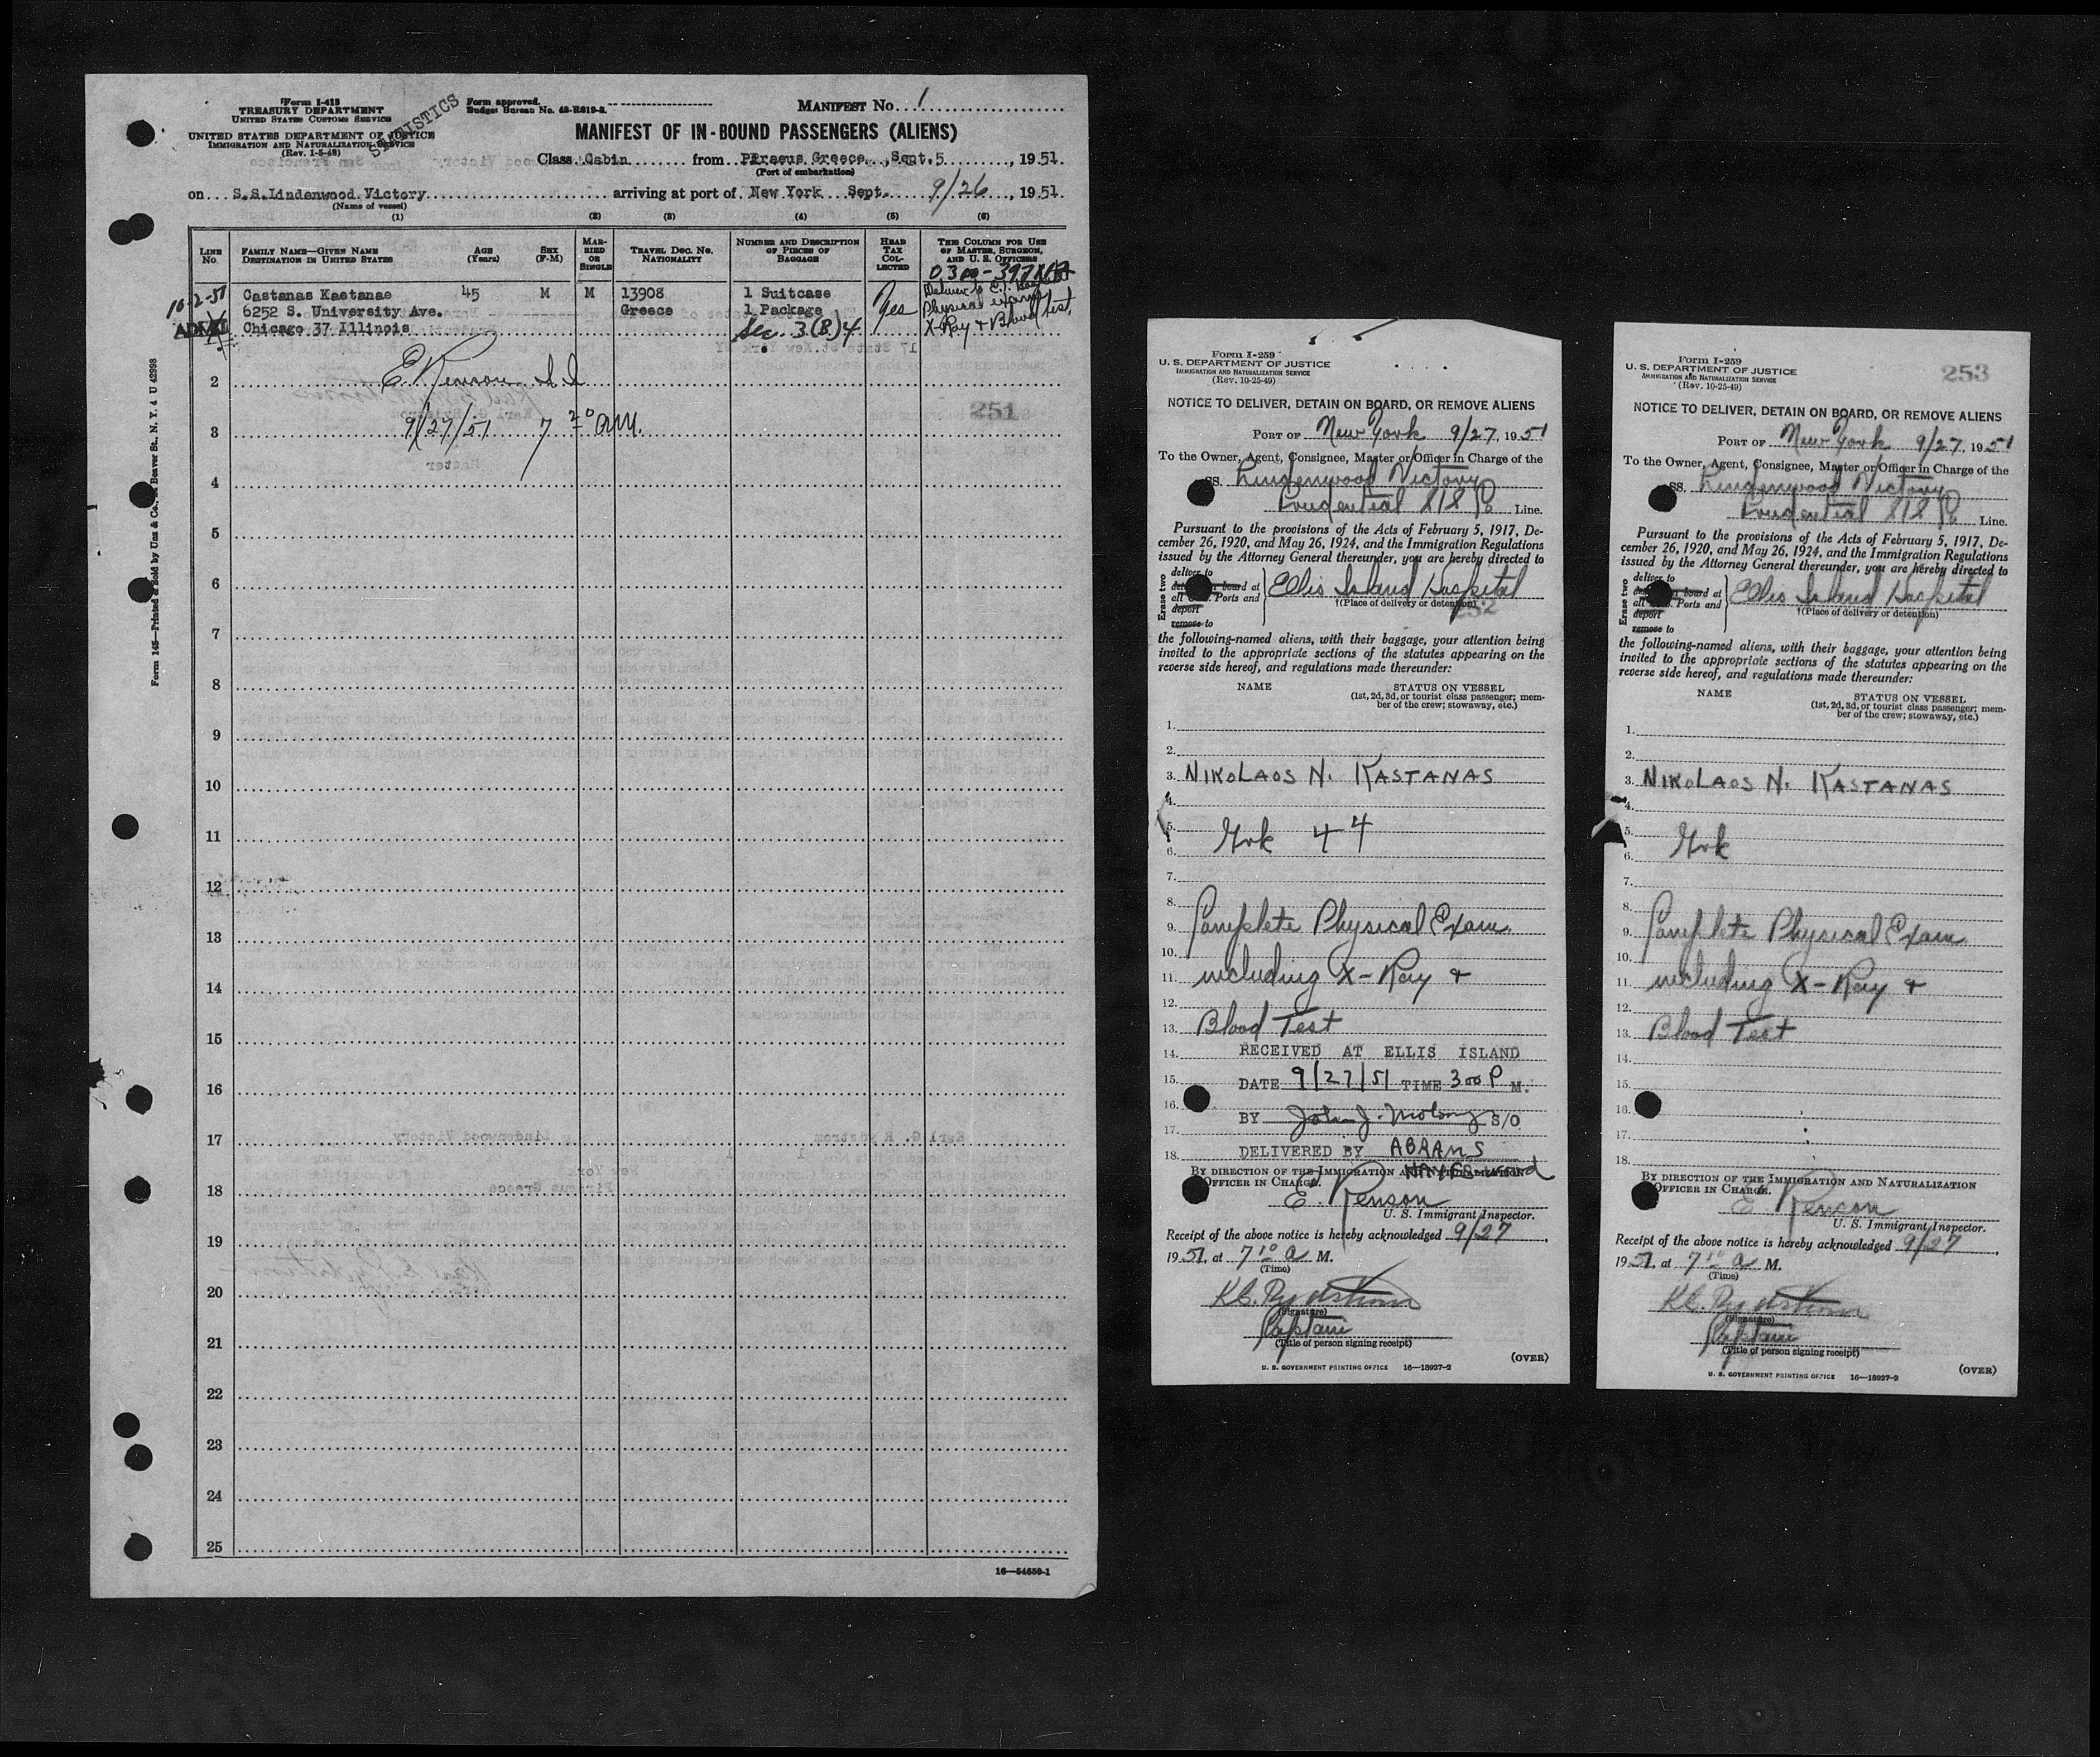 Form I-415
TREASURY DEPARTMENT
UNITED STATES CUSTOMS SERVICE
UNITED STATES DEPARTMENT OF JUSTICE
IMMIGRATION AND NATURALIZATION SERVICE
(Rev. 1-5-48)
STATISTICS
Form approved.
Budget Bureau No. 43-R019-3.
MANIFEST No. 1
MANIFEST OF IN-BOUND PASSENGERS (ALIENS)
Class Cabin from Piraeus Greece, Sept. 5, 1951
(Port of embarkation)
on S.S. Lindenwood Victory arriving at port of New York Sept. 9/26, 1951
(Name of vessel)
(1) (2) (3) (4) (5) (6)
LINE No.
FAMILY NAME—GIVEN NAME DESTINATION IN UNITED STATES
AGE (Years)
SEX (F-M)
MARRIED OR SINGLE
TRAVEL DOC. No. NATIONALITY
NUMBER AND DESCRIPTION OF PIECES OF BAGGAGE
HEAD TAX COLLECTED
THIS COLUMN FOR USE OF MASTER, SURGEON, AND U. S. OFFICERS
10-2-51
Castanas Kastanae 45 M M 13908 1 Suitcase Yes
6252 S. University Ave. Greece 1 Package
Chicago 37 Illinois Sec. 3(B)4
Physical exam
X-Ray & Blood test,
2 E. Renson
251
3 9/27/51 7 20 AM.
4
5
6
7
8
9
10
11
12
13
14
15
16
17
18
19
20
21
22
23
24
25
16—54650-1
Form I-259
U. S. DEPARTMENT OF JUSTICE
IMMIGRATION AND NATURALIZATION SERVICE
(Rev. 10-25-49)
NOTICE TO DELIVER, DETAIN ON BOARD, OR REMOVE ALIENS
PORT OF New York 9/27, 1951
To the Owner, Agent, Consignee, Master or Officer in Charge of the
SS. Lindenwood Victory
Prudential Line.
Pursuant to the provisions of the Acts of February 5, 1917, De-
cember 26, 1920, and May 26, 1924, and the Immigration Regulations
issued by the Attorney General thereunder, you are hereby directed to
Erase two
deliver to
board at
all Ports and
deport
remove to
Ellis Island Hospital
†(Place of delivery or detention)
252
the following-named aliens, with their baggage, your attention being
invited to the appropriate sections of the statutes appearing on the
reverse side hereof, and regulations made thereunder:
NAME STATUS ON VESSEL
(1st, 2d, 3d, or tourist class passenger; mem-
ber of the crew; stowaway, etc.)
1.
2.
3. NIKOLAOS N. KASTANAS
4.
5. Grk 44
6.
7.
8.
9. Complete Physical Exam
10.
11. including X-Ray &
12.
13. Blood Test
14. RECEIVED AT ELLIS ISLAND
15. DATE 9/27/51 TIME 3 00 P M.
16. BY John J. S/O
17.
18. DELIVERED BY ABRAMS
BY DIRECTION OF THE IMMIGRATION AND NATURALIZATION
OFFICER IN CHARGE.
E. Renson
U. S. Immigrant Inspector.
Receipt of the above notice is hereby acknowledged 9/27,
1951, at 7 10 a M.
(Time)
K.G. Rydstrom
(Signature)
Captain
(Title of person signing receipt)
(OVER)
U. S. GOVERNMENT PRINTING OFFICE 16—18927-2
Form I-259
U. S. DEPARTMENT OF JUSTICE
IMMIGRATION AND NATURALIZATION SERVICE
(Rev. 10-25-49)
253
NOTICE TO DELIVER, DETAIN ON BOARD, OR REMOVE ALIENS
PORT OF New York 9/27, 1951
To the Owner, Agent, Consignee, Master or Officer in Charge of the
SS. Lindenwood Victory
Prudential Line.
Pursuant to the provisions of the Acts of February 5, 1917, De-
cember 26, 1920, and May 26, 1924, and the Immigration Regulations
issued by the Attorney General thereunder, you are hereby directed to
Erase two
deliver to
board at
all Ports and
deport
remove to
Ellis Island Hospital
†(Place of delivery or detention)
the following-named aliens, with their baggage, your attention being
invited to the appropriate sections of the statutes appearing on the
reverse side hereof, and regulations made thereunder:
NAME STATUS ON VESSEL
(1st, 2d, 3d, or tourist class passenger; mem-
ber of the crew; stowaway, etc.)
1.
2.
3. NIKOLAOS N. KASTANAS
4.
5. Grk
6.
7.
8.
9. Complete Physical Exam
10.
11. including X-Ray &
12.
13. Blood Test
14.
15.
16.
17.
18.
BY DIRECTION OF THE IMMIGRATION AND NATURALIZATION
OFFICER IN CHARGE.
E Renson
U. S. Immigrant Inspector.
Receipt of the above notice is hereby acknowledged 9/27,
1951, at 7 10 a M.
(Time)
K.G. Rydstrom
(Signature)
Captain
(Title of person signing receipt)
(OVER)
U. S. GOVERNMENT PRINTING OFFICE 16—18927-2